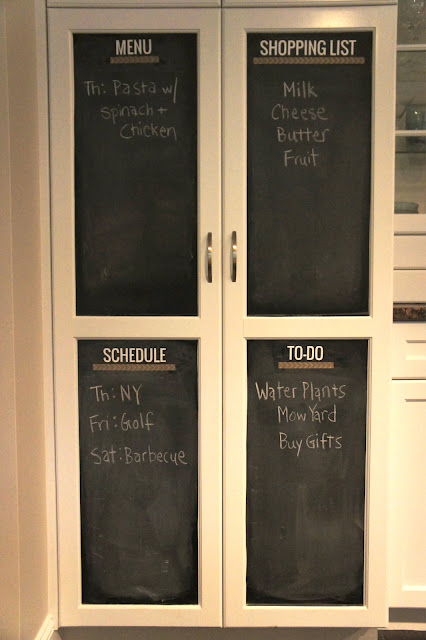 MENU
Th: Pasta w/
spinach +
Chicken
SHOPPING LIST
Milk
Cheese
Butter
Fruit
SCHEDULE
Th: NY
Fri: Golf
Sat: Barbecue
TO-DO
Water Plants
Mow Yard
Buy Gifts